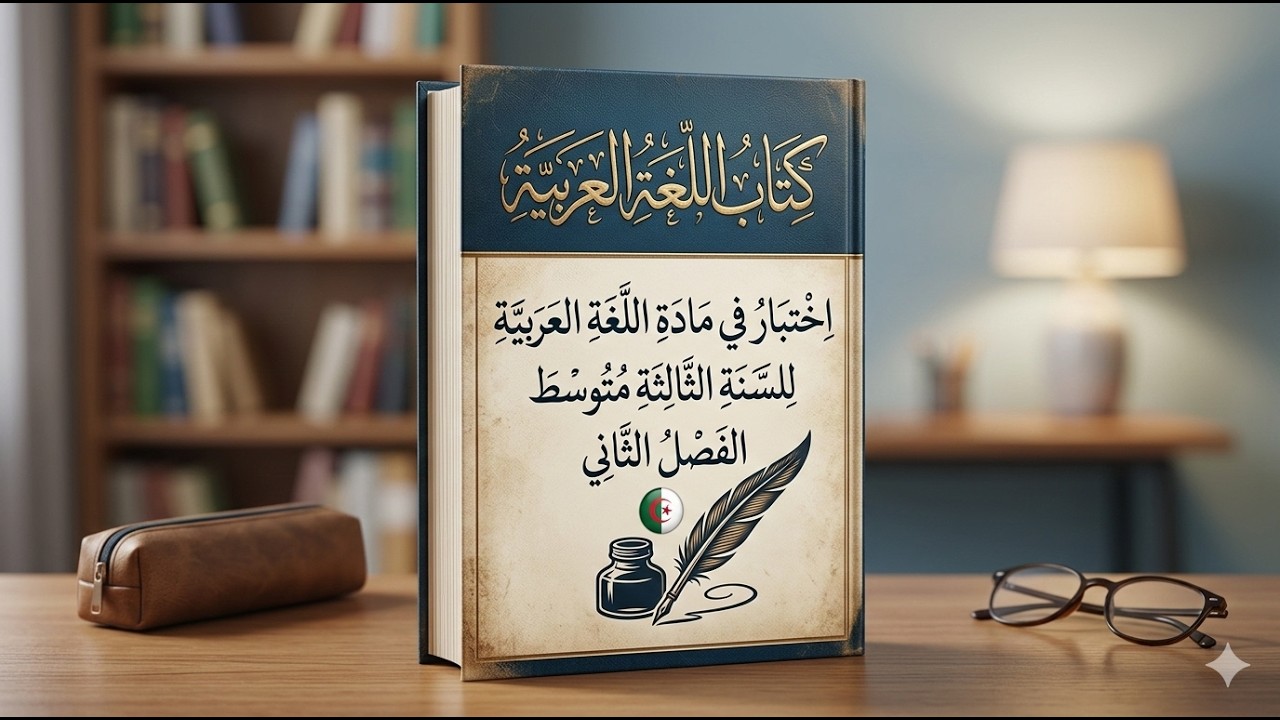 كِتَابُ اللّغَةِ العَرَبِيَّةِ
اِخْتبَارُ في مَادَةِ اللَّغَةِ العَرَبِيَّةِ
لِلسَّنَةِ الثَّالِثَةِ مُتُوسْطَ
الفَصْلُ الثَّانِي